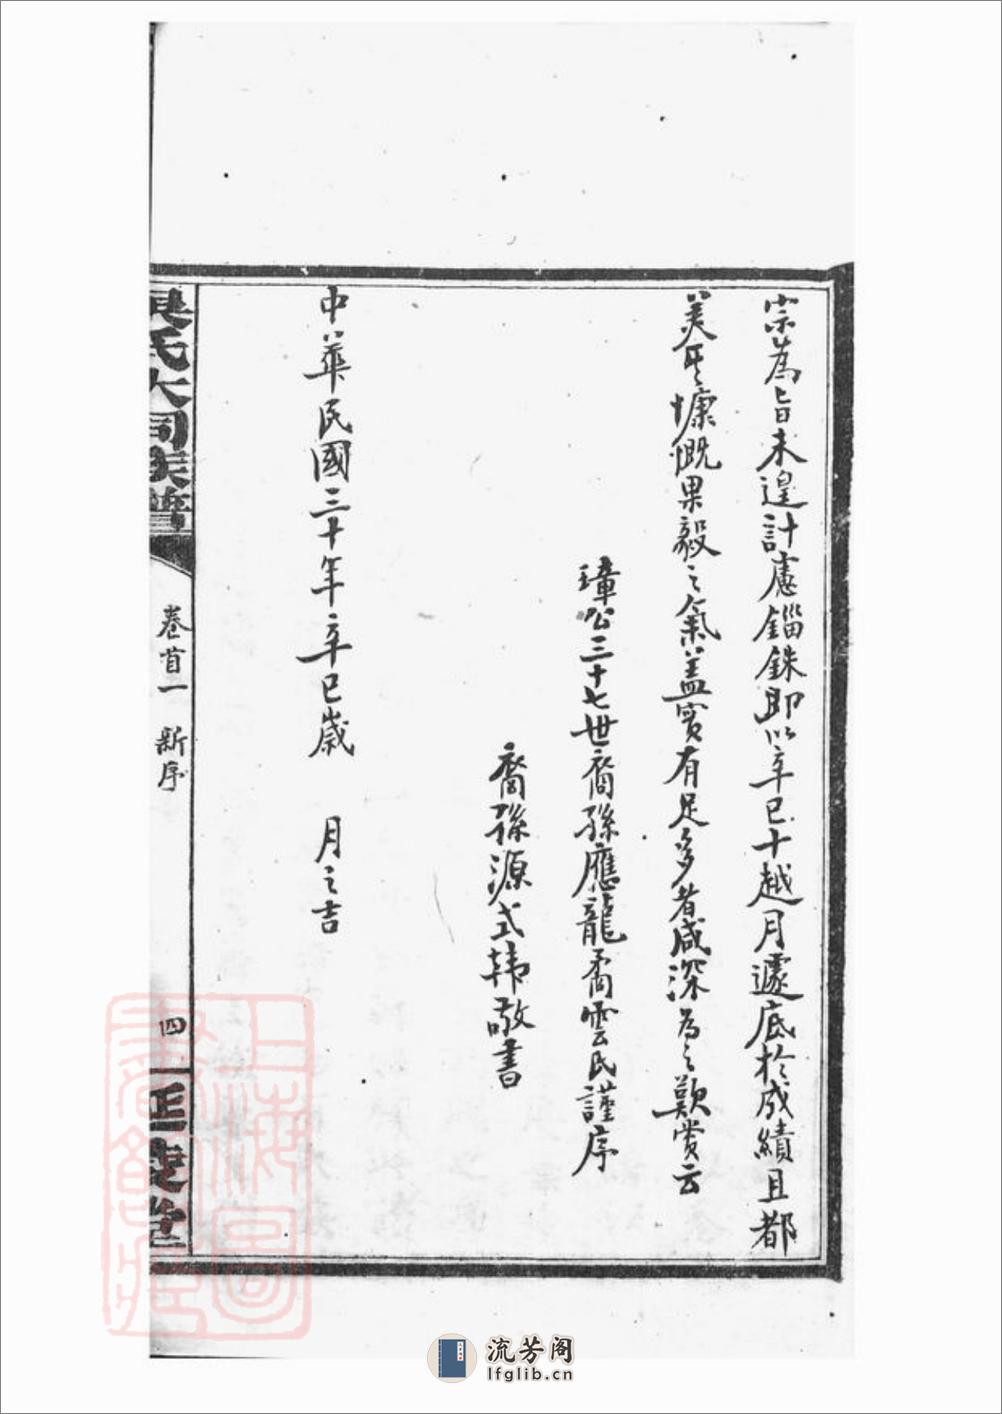 宗為旨未遑計慮錙銖即以辛巳十越月遽底於成績且都
美其慷慨果毅之氣蓋實有足多者咸深為之歎賞云
璋公三十七世裔孫應龍矞雲氏謹序
裔孫源式韩敬書
中華民國三十年辛巳歲 月之吉
吳氏大同族譜
卷首一 新序
四
上海圖書館藏
流芳阁
lfglib.cn